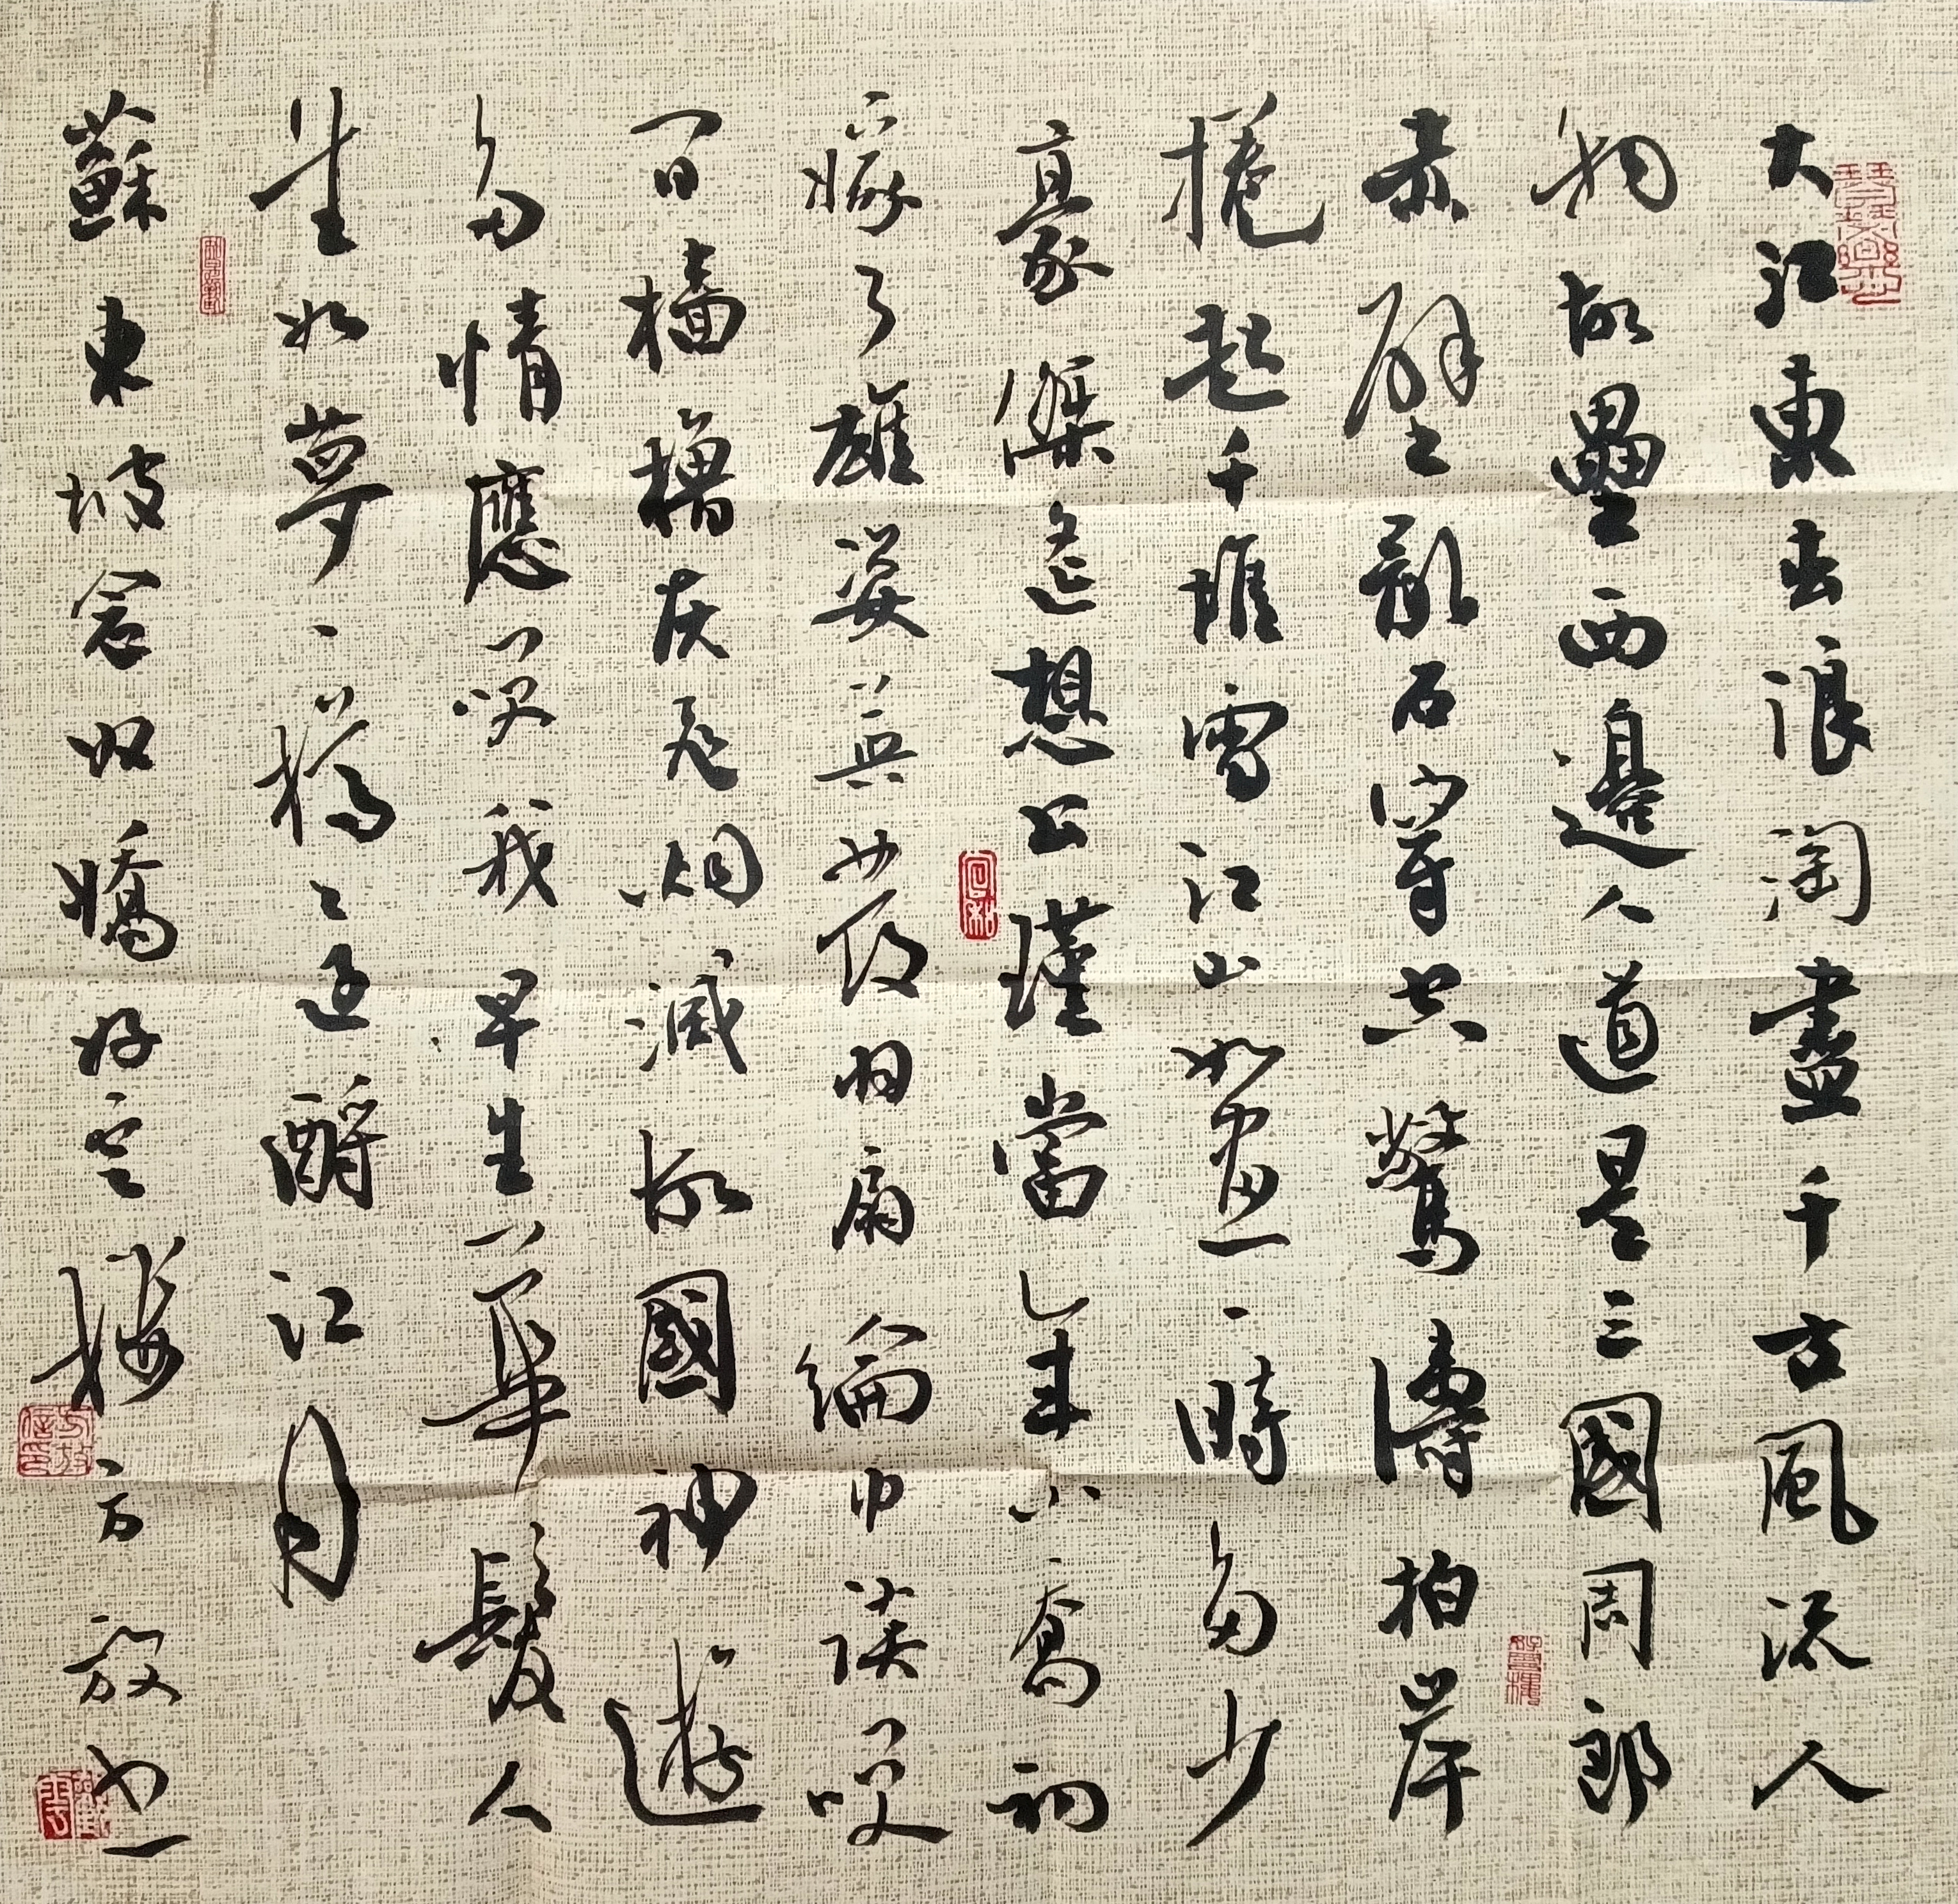 大江東去浪淘盡千古風流人
物故壘西邊人道是三國周郎
赤壁亂石穿空驚濤拍岸
捲起千堆雪江山如畫一時多少
豪傑遙想公瑾當年小喬初
嫁了雄姿英發羽扇綸巾談笑
間檣櫓灰飛烟滅故國神遊
多情應笑我早生華髮人
生如夢一樽還酹江月
蘇東坡念奴嬌 方放書